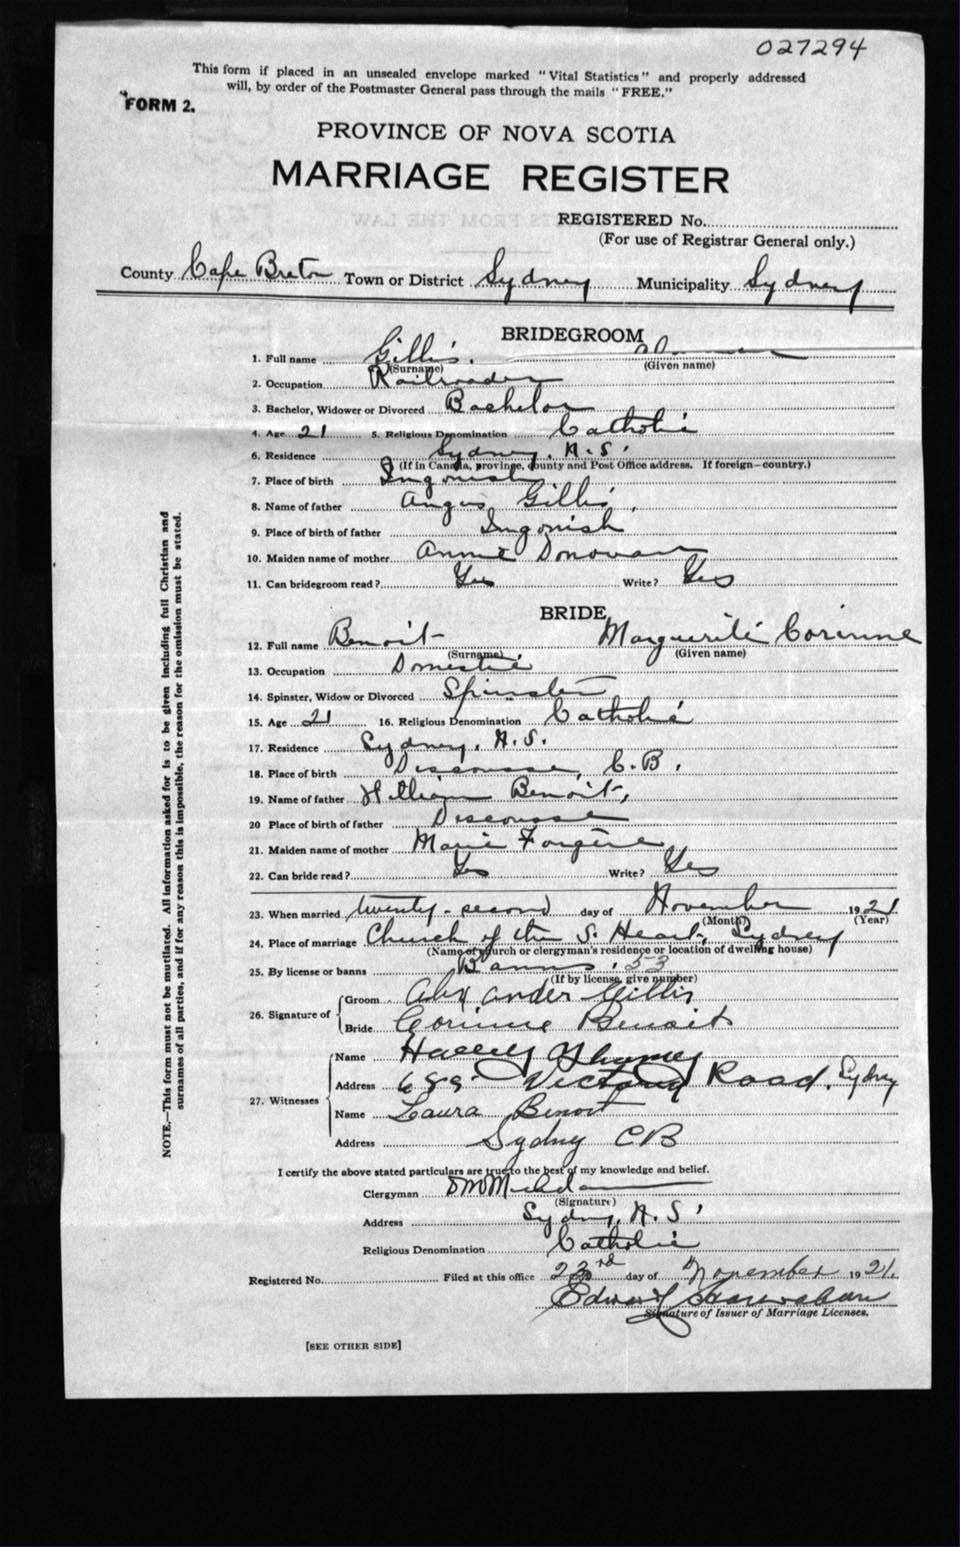 027294
This form if placed in an unsealed envelope marked "Vital Statistics" and properly addressed
will, by order of the Postmaster General pass through the mails "FREE."
FORM 2.
PROVINCE OF NOVA SCOTIA
MARRIAGE REGISTER
REGISTERED No.
(For use of Registrar General only.)
County Cape Breton Town or District Sydney Municipality Sydney
BRIDEGROOM
1. Full name Gillis.
(Surname) (Given name)
2. Occupation Railroader
3. Bachelor, Widower or Divorced Bachelor
4. Age 21 5. Religious Denomination Catholic
6. Residence Sydney, N.S.
(If in Canada, province, county and Post Office address. If foreign—country.)
7. Place of birth Ingonish
8. Name of father Angus Gillis
9. Place of birth of father Ingonish
10. Maiden name of mother Annie Donovan
11. Can bridegroom read? Yes Write? Yes
BRIDE
12. Full name Benoit Marguerite Corinne
(Surname) (Given name)
13. Occupation Domestic
14. Spinster, Widow or Divorced Spinster
15. Age 21 16. Religious Denomination Catholic
17. Residence Sydney, N.S.
18. Place of birth Descousse, C.B.
19. Name of father William Benoit,
20 Place of birth of father Descousse
21. Maiden name of mother Marie
22. Can bride read? Yes Write? Yes
23. When married twenty-second day of November 1921
(Month) (Year)
24. Place of marriage Church of the S. Heart, Sydney
(Name of church or clergyman's residence or location of dwelling house)
25. By license or banns Banns, 53
(If by license, give number)
26. Signature of
Groom Alexander Gillis
Bride Corinne Benoit
27. Witnesses
Name
Address Victoria Road, Sydney
Name Laura Benoit
Address Sydney CB
I certify the above stated particulars are true to the best of my knowledge and belief.
Clergyman
(Signature)
Address Sydney, N.S.
Religious Denomination Catholic
Registered No. Filed at this office 23rd day of November 1921.
Edward
Signature of Issuer of Marriage Licenses.
[SEE OTHER SIDE]
NOTE.—This form must not be mutilated. All information asked for is to be given including full Christian and
surnames of all parties, and if for any reason this is impossible, the reason for the omission must be stated.